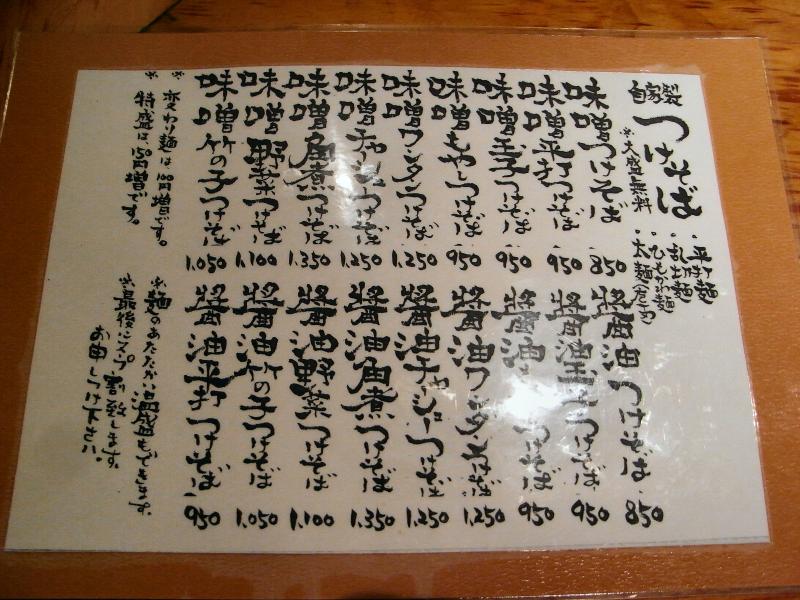 自家製
つけそば
※大盛無料
・平打麺
・乱切麺
・ひもかわ麺
・太麺
味噌つけそば 850
味噌平打つけそば 950
味噌玉子つけそば 950
味噌もやしつけそば 950
味噌ワンタンつけそば 1,250
味噌チャーシューつけそば 1,250
味噌角煮つけそば 1,350
味噌野菜つけそば 1,100
味噌竹の子つけそば 1,050
醤油つけそば 850
醤油玉子つけそば 950
醤油 つけそば 950
醤油ワンタンつけそば 1,250
醤油チャーシューつけそば 1,250
醤油角煮つけそば 1,350
醤油野菜つけそば 1,100
醤油竹の子つけそば 1,050
醤油平打つけそば 950
※変わり麺は100円増です。
※特盛は、150円増です。
※麺のあたたかい温盛もできます。
※最後にスープ割致します。
お申しつけ下さい。